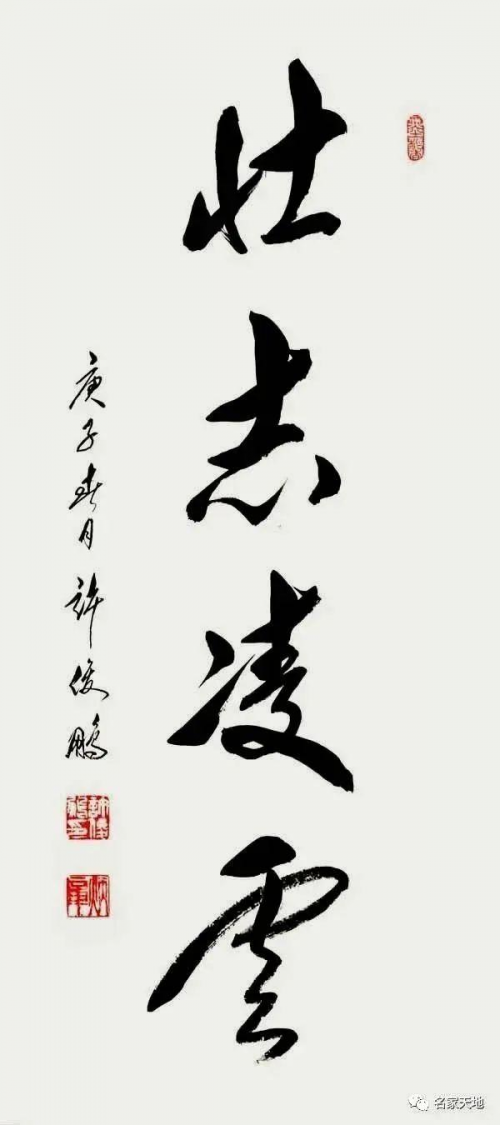 壮志凌雲
庚子春月 許俊鵬
名家天地